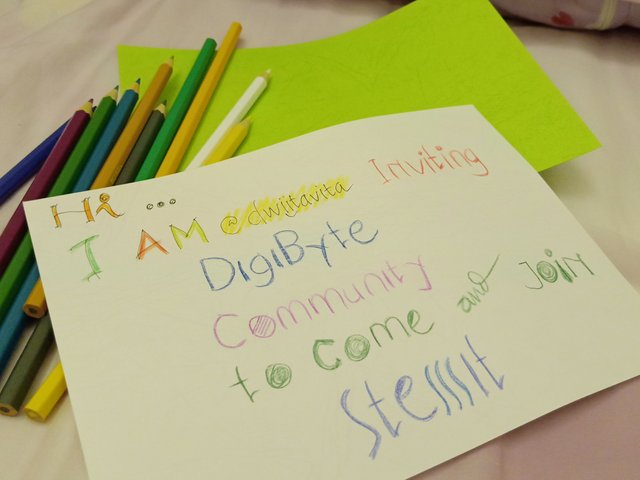 Hi ...
I AM @dwijtavita Inviting
DigiByte
Community
to come and Join
StesssIt